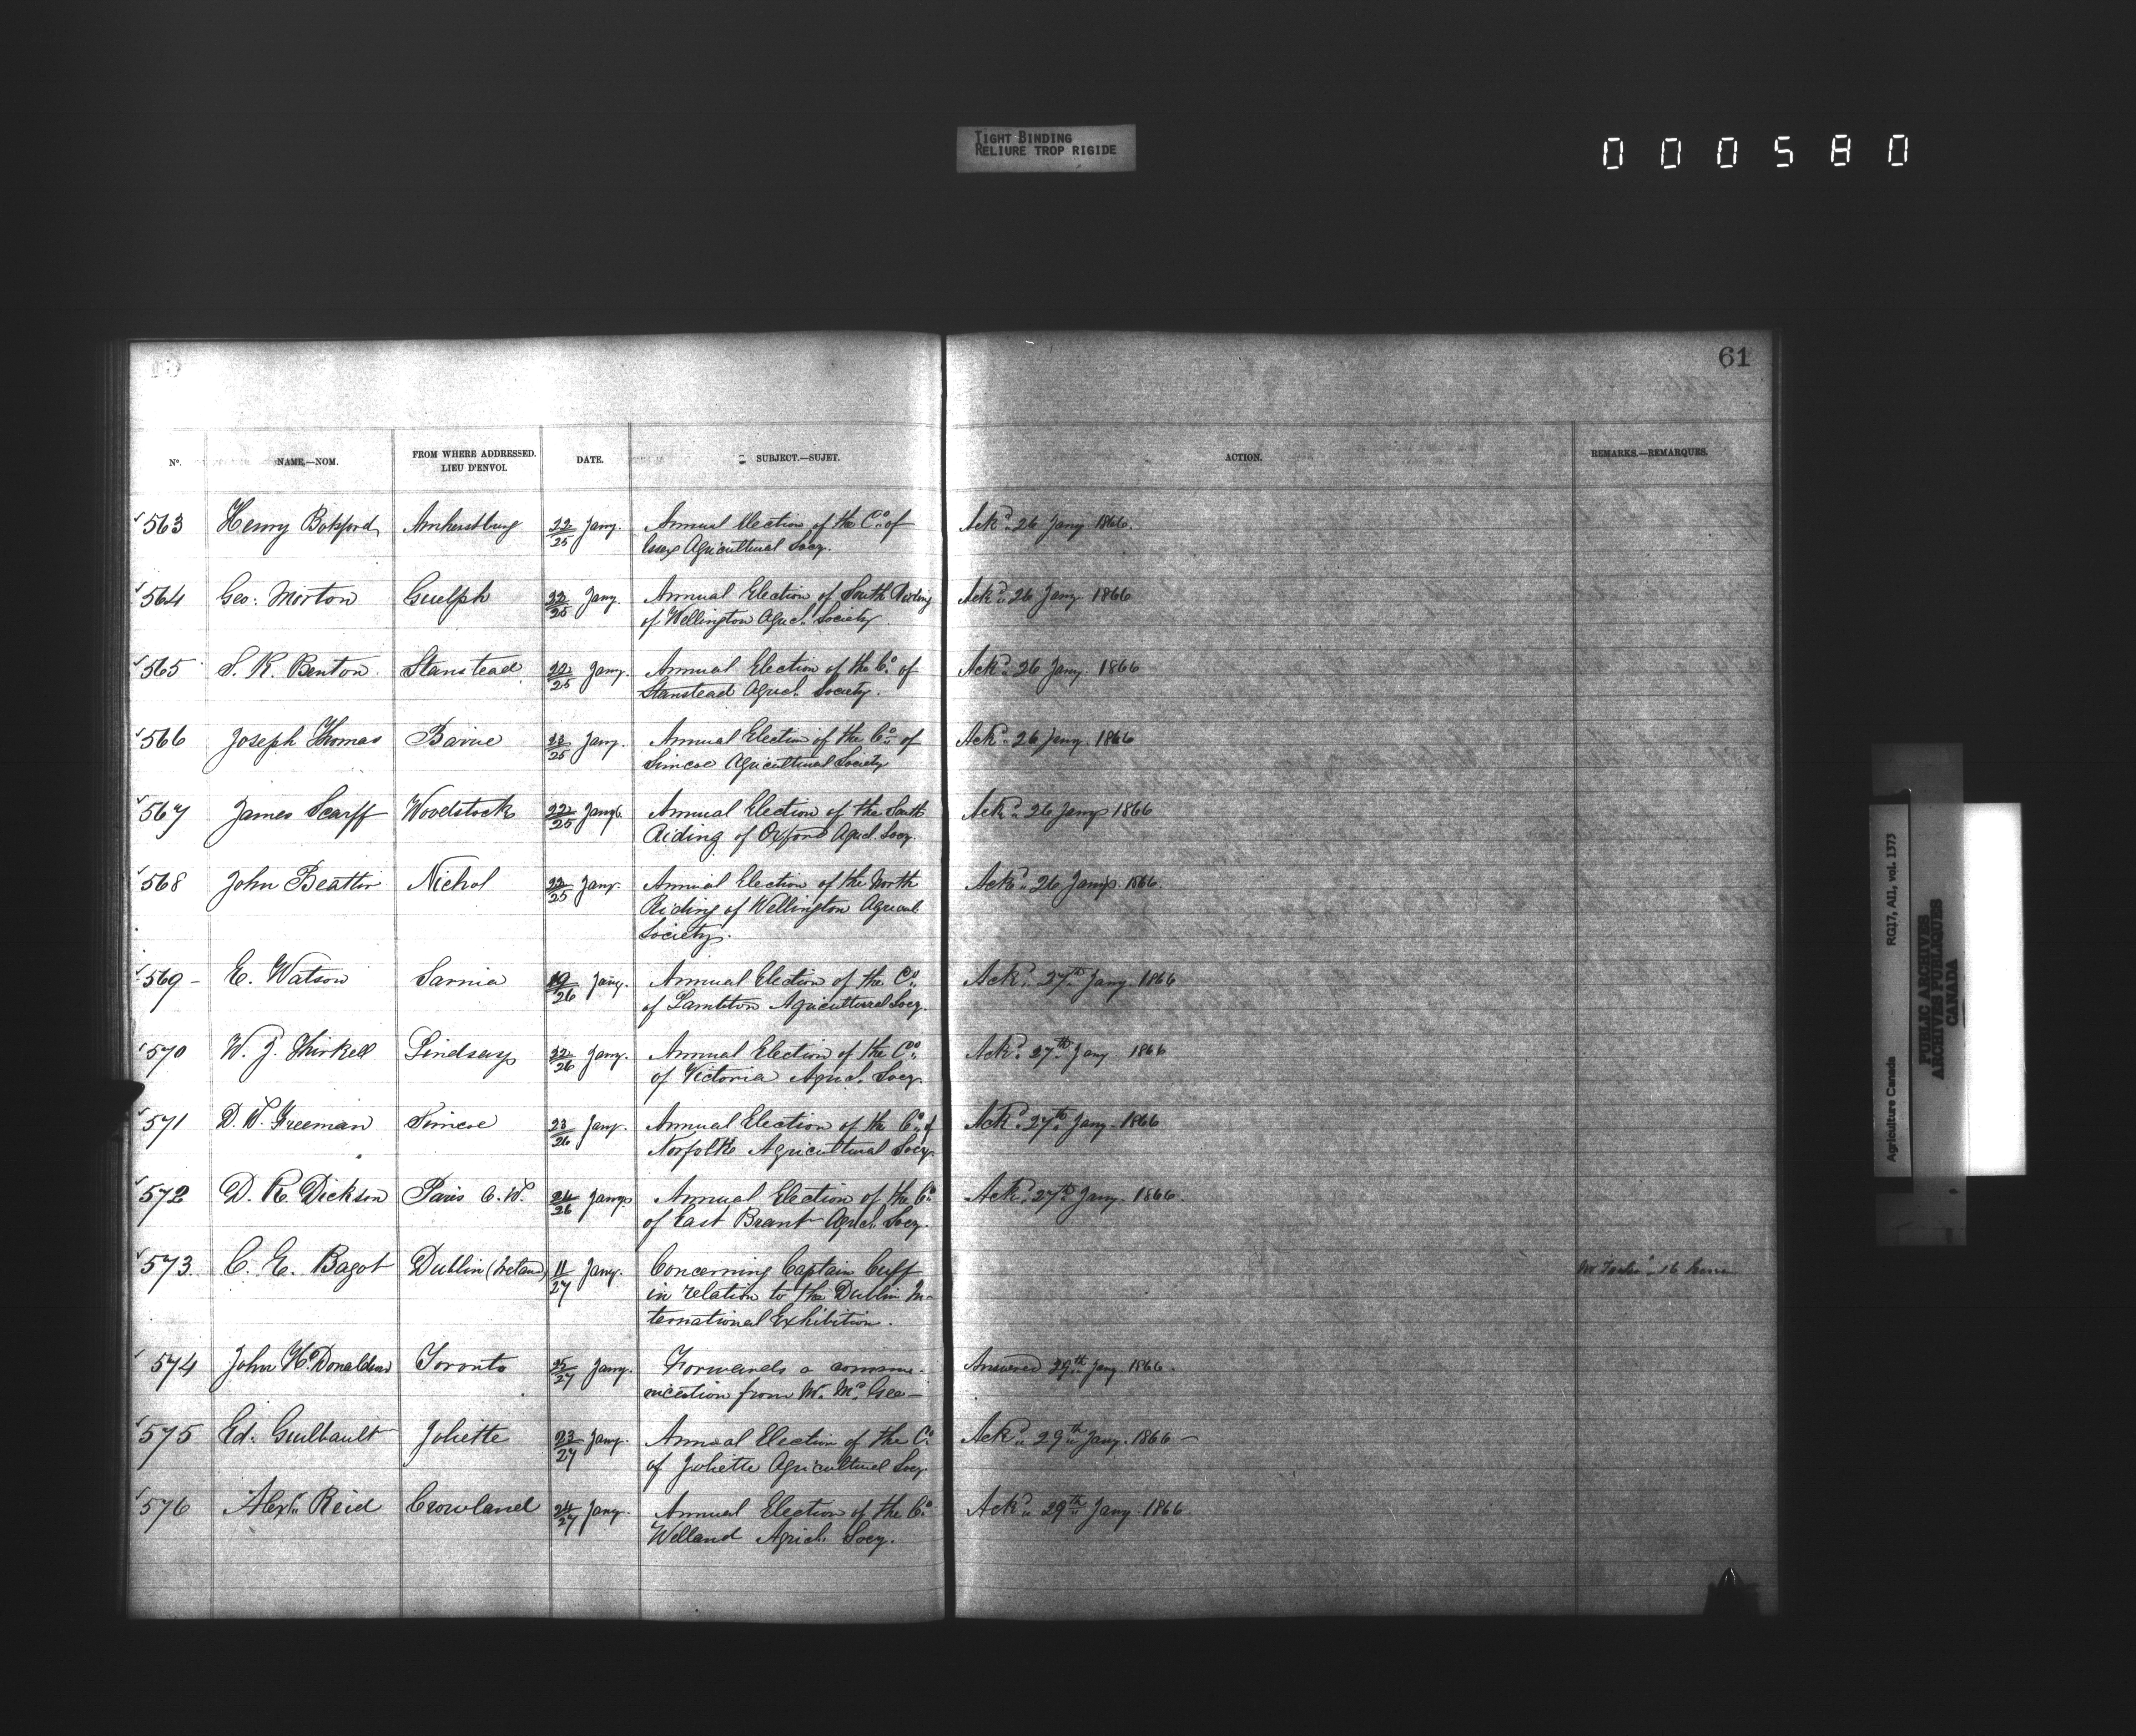 TIGHT BINDING
RELIURE TROP RIGIDE
000580
61
No. NAME,—NOM. FROM WHERE ADDRESSED. LIEU D'ENVOI. DATE. SUBJECT.—SUJET. ACTION. REMARKS.—REMARQUES.
563 Henry Botsford Amherstburg 22/25 Jany. Annual Election of the Co. of Ackd. 26 Jany 1866.
Essex Agricultural Socy.
564 Geo: Morton Guelph 22/25 Jany. Annual Election of South Riding Ackd. 26 Jany 1866
of Wellington Agricl. Society.
565 S. R. Benton. Stanstead. 22/25 Jany. Annual Election of the Co. of Ackd. 26 Jany. 1866
Stanstead Agricl. Society.
566 Joseph Thomas Barrie 23/25 Jany. Annual Election of the Co. of Ackd. 26 Jany. 1866
Simcoe Agricultural Society
567 James Scarff Woodstock 22/25 Jany. Annual Election of the South Ackd. 26 Jany 1866
Riding of Oxford Agricl. Socy.
568 John Beattie Nichol 22/25 Jany. Annual Election of the North Ackd. 26 Jany. 1866.
Riding of Wellington Agricul.
Society.
569 - E. Watson Sarnia 19/26 Jany. Annual Election of the Co. Ackd. 27th Jany. 1866
of Lambton Agricultural Socy.
570 W. J. Thirkell Lindsay 22/26 Jany. Annual Election of the Co. Ackd. 27th Jany 1866
of Victoria Agricl. Socy.
571 D. W. Freeman Simcoe 23/26 Jany. Annual Election of the Co. of Ackd. 27th Jany. 1866
Norfolk Agricultural Socy.
572 D. R. Dickson Paris C. W. 24/26 Jany. Annual Election of the Co. Ackd. 27th Jany. 1866.
of East Brant Agricl. Socy.
573. C. E. Bagot Dublin (Ireland) 11/27 Jany. Concerning Captain Cuff
in relation to the Dublin In-
ternational Exhibition.
574 John McDonaldson Toronto 25/27 Jany. Forwards a commu- Answered 29th Jany. 1866.
nication from W. McGee—
575 Ed. Guilbault Joliette 23/27 Jany. Annual Election of the Co. Ackd. 29th Jany. 1866—
of Joliette Agricultural Socy
576 Alexr. Reid Crowland 24/27 Jany. Annual Election of the Co. Ackd. 29th Jany. 1866.
Welland Agricl. Socy.
Agriculture Canada RG17, AI1, vol. 1373
PUBLIC ARCHIVES
ARCHIVES PUBLIQUES
CANADA